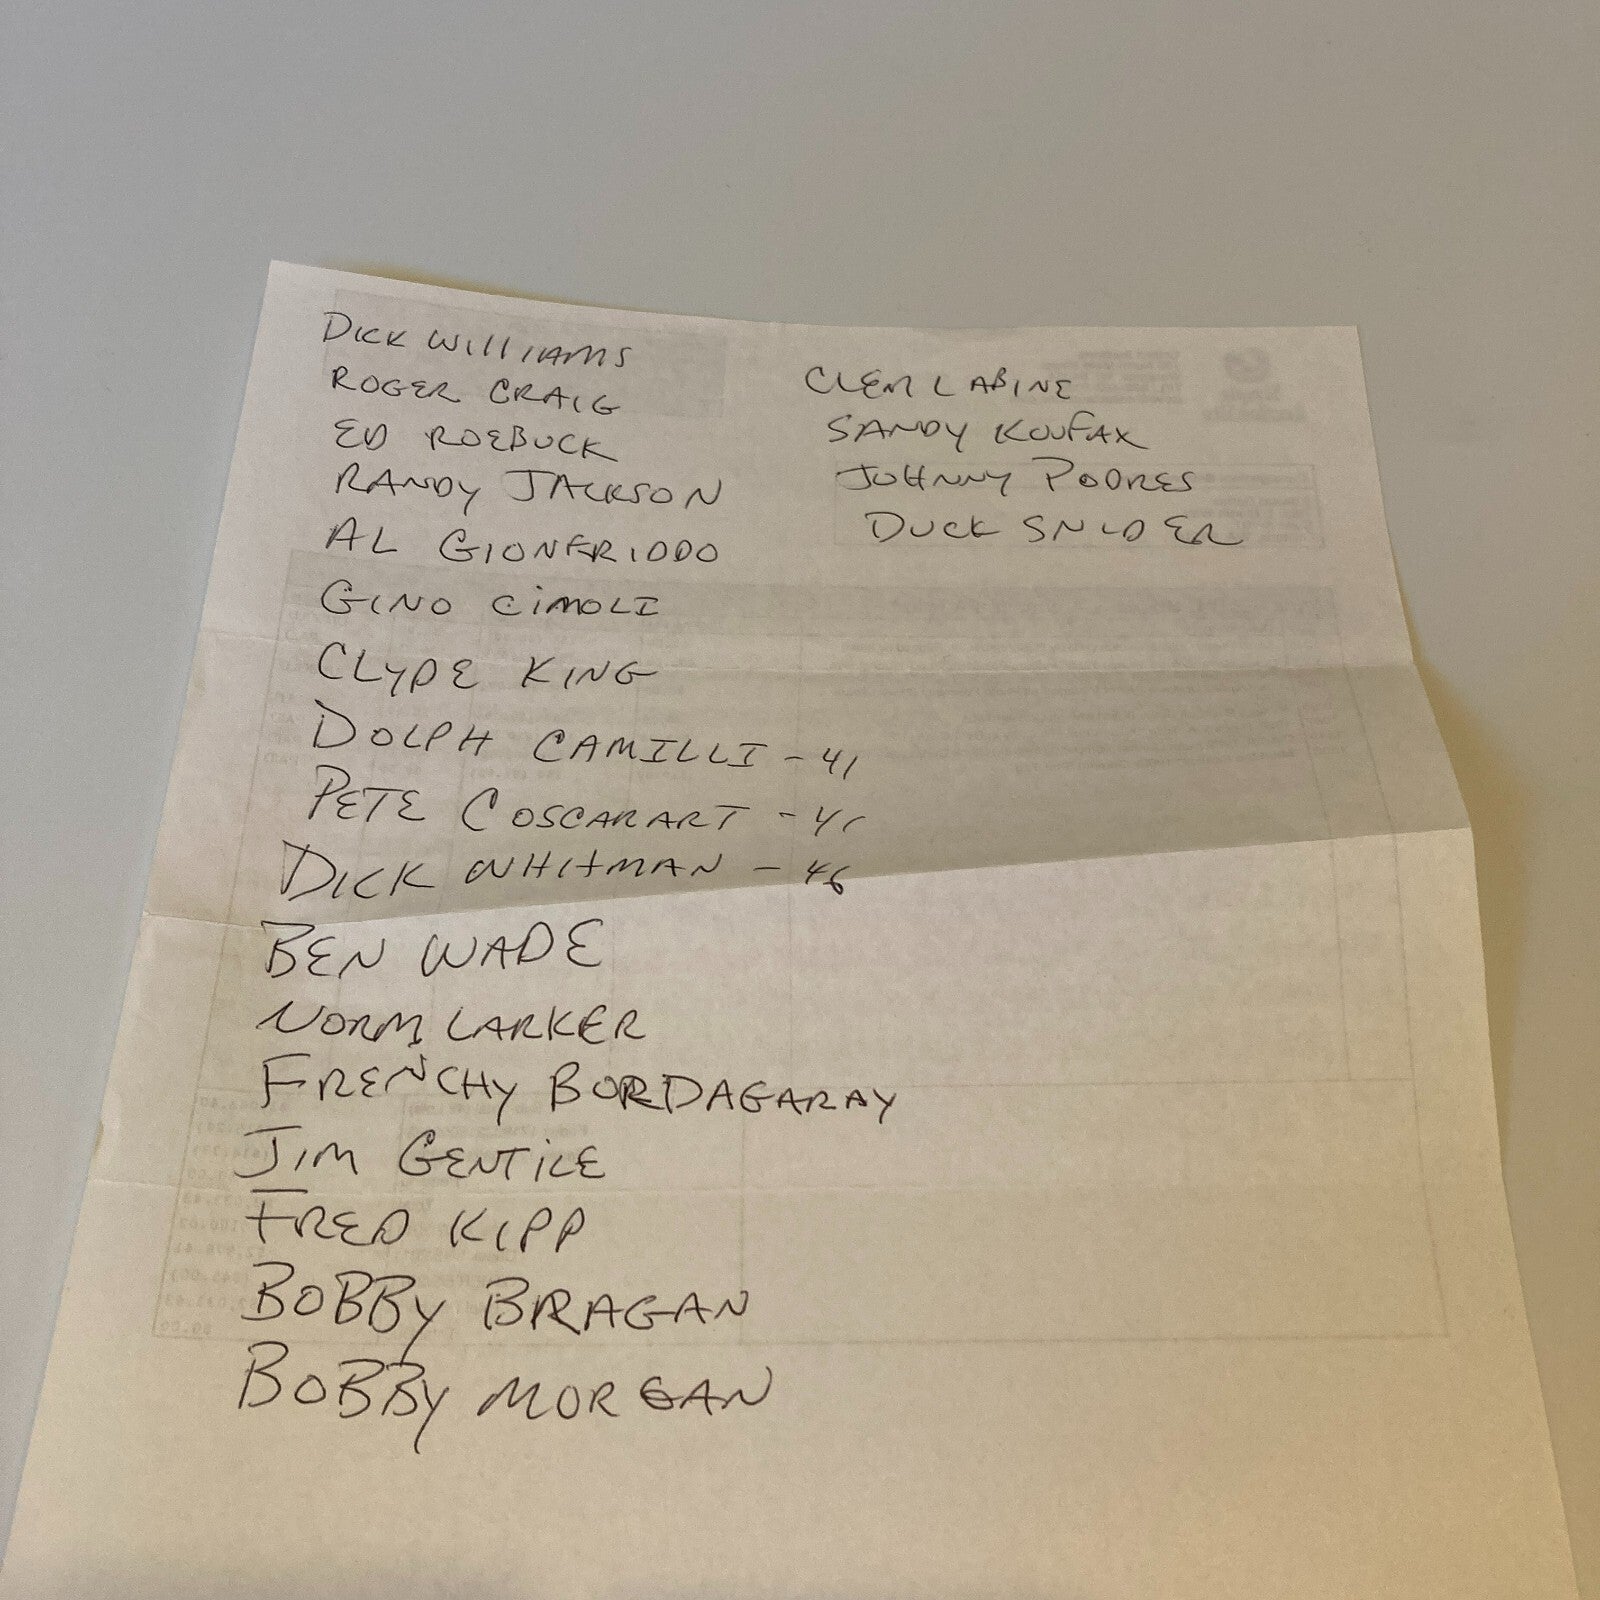 DICK WILLIAMS
ROGER CRAIG
ED ROEBUCK
RANDY JACKSON
AL GIONFRIDDO
GINO CIMOLI
CLYDE KING
DOLPH CAMILLI - 41
PETE COSCARART - 41
DICK WHITMAN - 46
BEN WADE
NORM LARKER
FRENCHY BORDAGARAY
JIM GENTILE
FRED KIPP
BOBBY BRAGAN
BOBBY MORGAN
CLEM LABINE
SANDY KOUFAX
JOHNNY PODRES
DUCK SNIDER